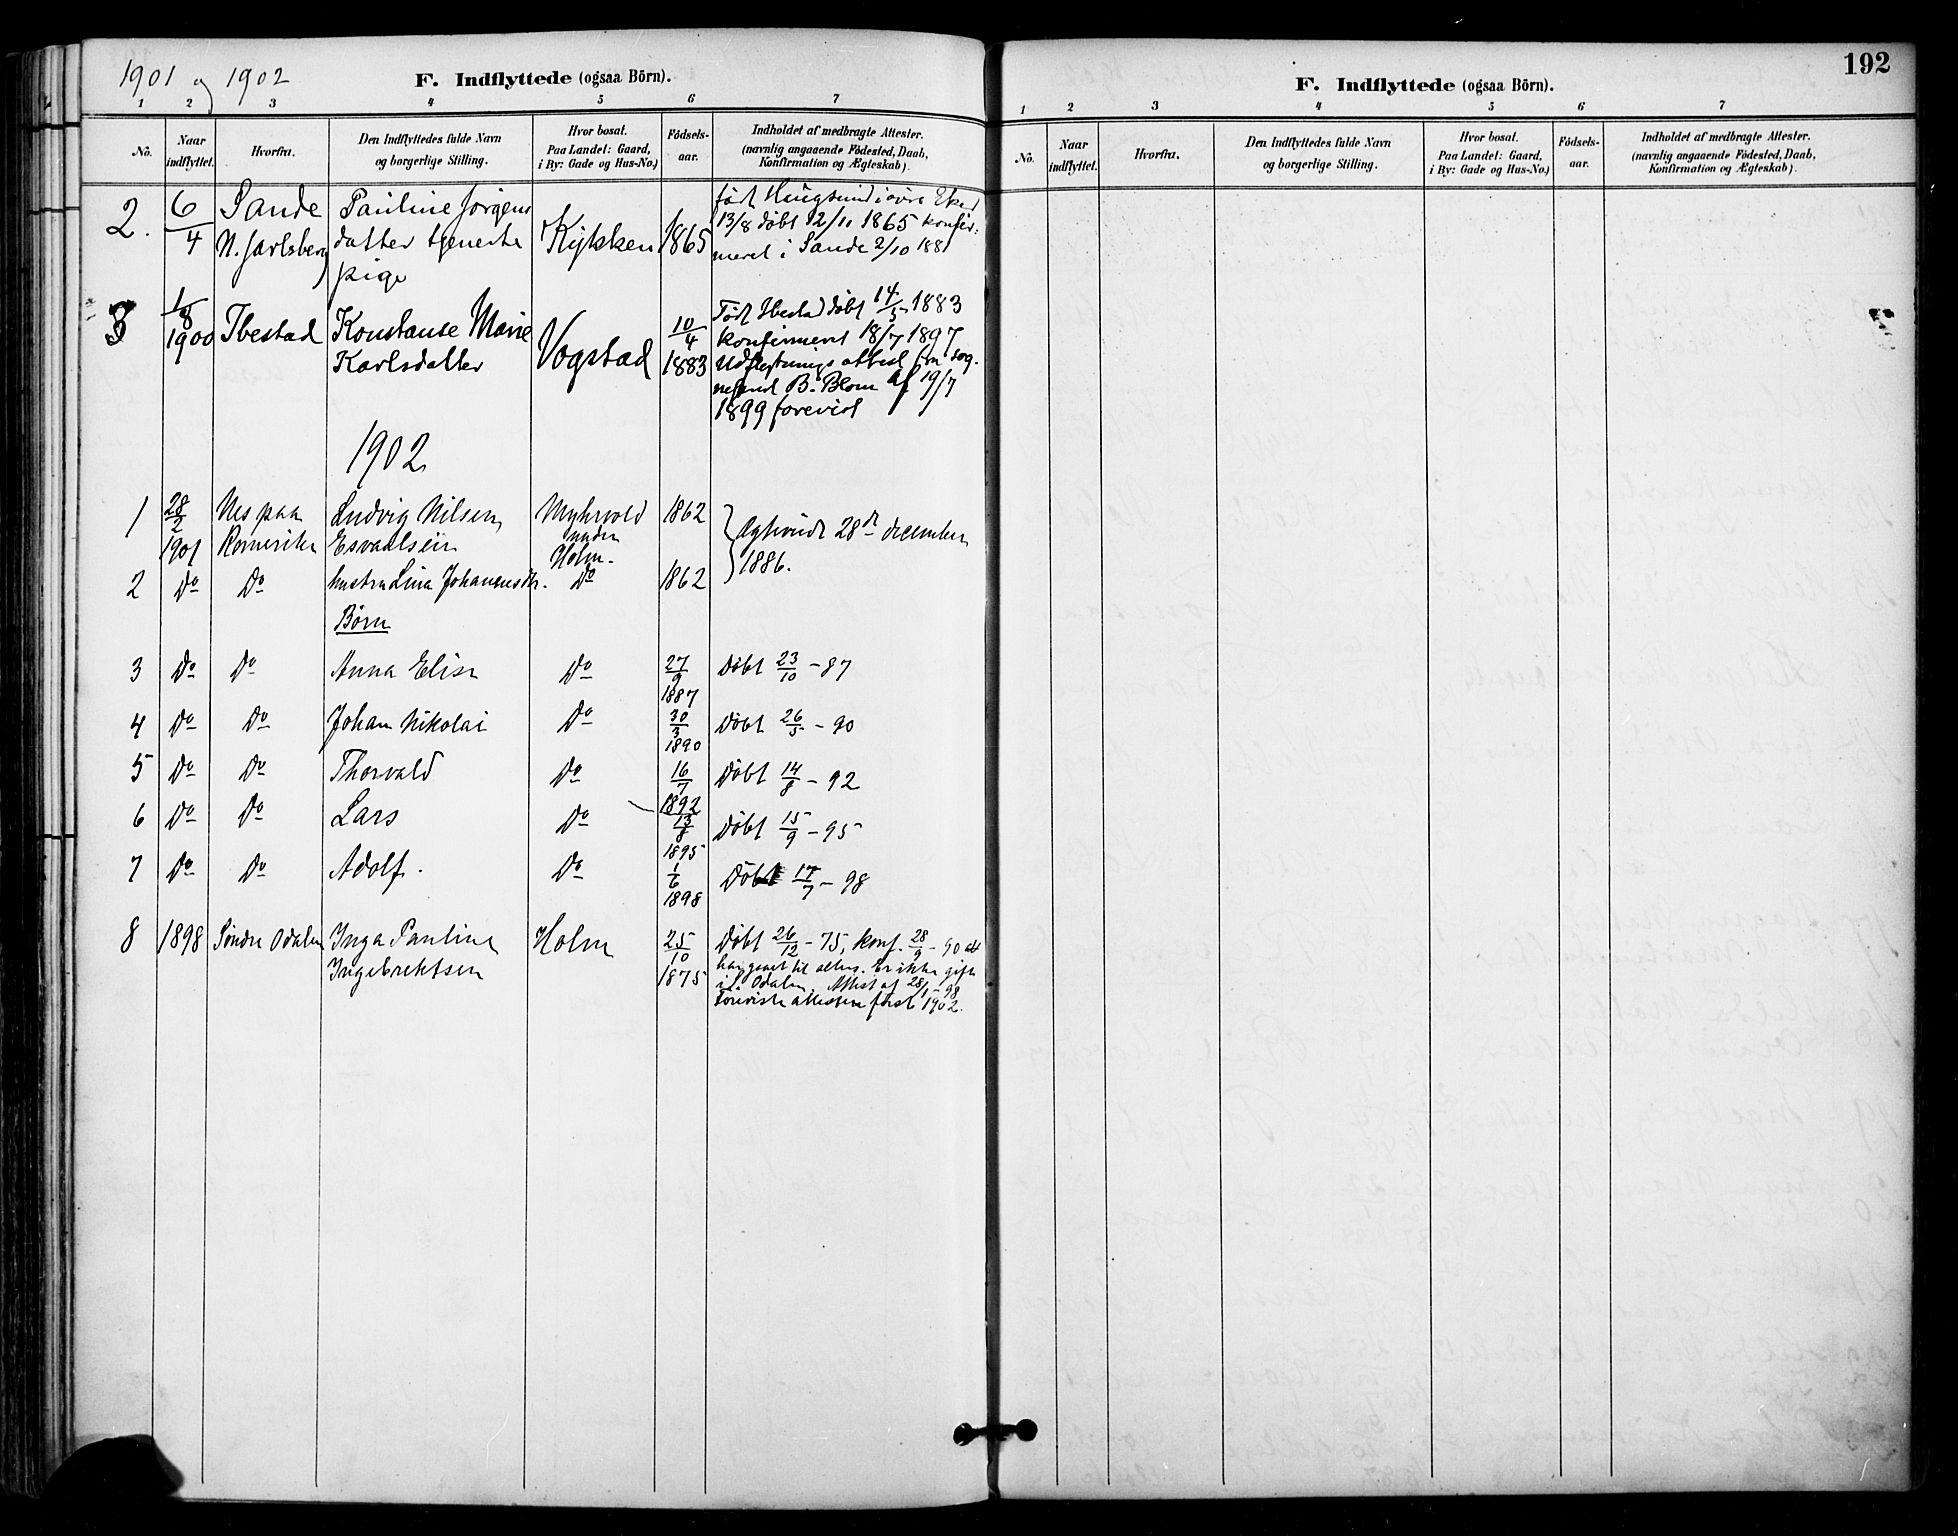 1901 og 1902
F. Indflyttede (ogsaa Börn).
1 2 3 4 5 6 7
No. Naar indflyttet. Hvorfra. Den Indflyttedes fulde Navn og borgerlige Stilling. Hvor bosat. Paa Landet: Gaard, i By: Gade og Hus-No.) Födsels-aar. Indholdet af medbragte Attester. (navnlig angaaende Födested, Daab, Konfirmation og Ægteskab).
2. 6/4 Sande N. Jarlsberg Pauline Jørgens datter tjeneste pige Kykken 1865 født Haugsund i øvre Eker
13/8 døbt 12/11 1865 konfir=
meret i Sande 2/10 1881
3 1/8 1900 Ibestad Konstanse Marie Karlsdatter Vogstad 10/4 1883 Født Ibestad døbt 14/5 1883
konfirmert 18/7 1897
Udflytnings attest fra sog-
neprest B. Blom af 19/7
1899 forevist
1902
1 28/2 1901 Nes paa Romerike Ludvig Nilsen Esvaldsen Myhrvold under Holm. 1862 } Ægteviet 28de december
1886.
2 Do Do hustru Lina Johannesdtr. Do 1862
Børn
3 Do Do Anna Elise Do 27/9 1887 Døbt 23/10 - 87
4 Do Do Johan Nikolai Do 30/3 1890 Døbt 26/5 - 90
5 Do Do Thorvald Do 16/7 1892 Døbt 14/8 - 92
6 Do Do Lars Do 13/8 1895 Døbt 15/9 - 95
7 Do Do Adolf. Do 1/6 1898 Døbt 17/7 - 98
8 1898 Søndre Odalen Inga Pauline Ingebrektsen Holm 25/10 1875 Døbt 26/12 - 75, konf. 28/9 - 90 at
har gaaet til alters. Er ikke gift
i S. Odalen. Attest af 28/1 - 98
Foreviste attesten først 1902.
192
F. Indflyttede (ogsaa Börn).
1 2 3 4 5 6 7
No. Naar indflyttet. Hvorfra. Den Indflyttedes fulde Navn og borgerlige Stilling. Hvor bosat. Paa Landet: Gaard, i By: Gade og Hus-No.) Födsels-aar. Indholdet af medbragte Attester. (navnlig angaaende Födested, Daab, Konfirmation og Ægteskab).